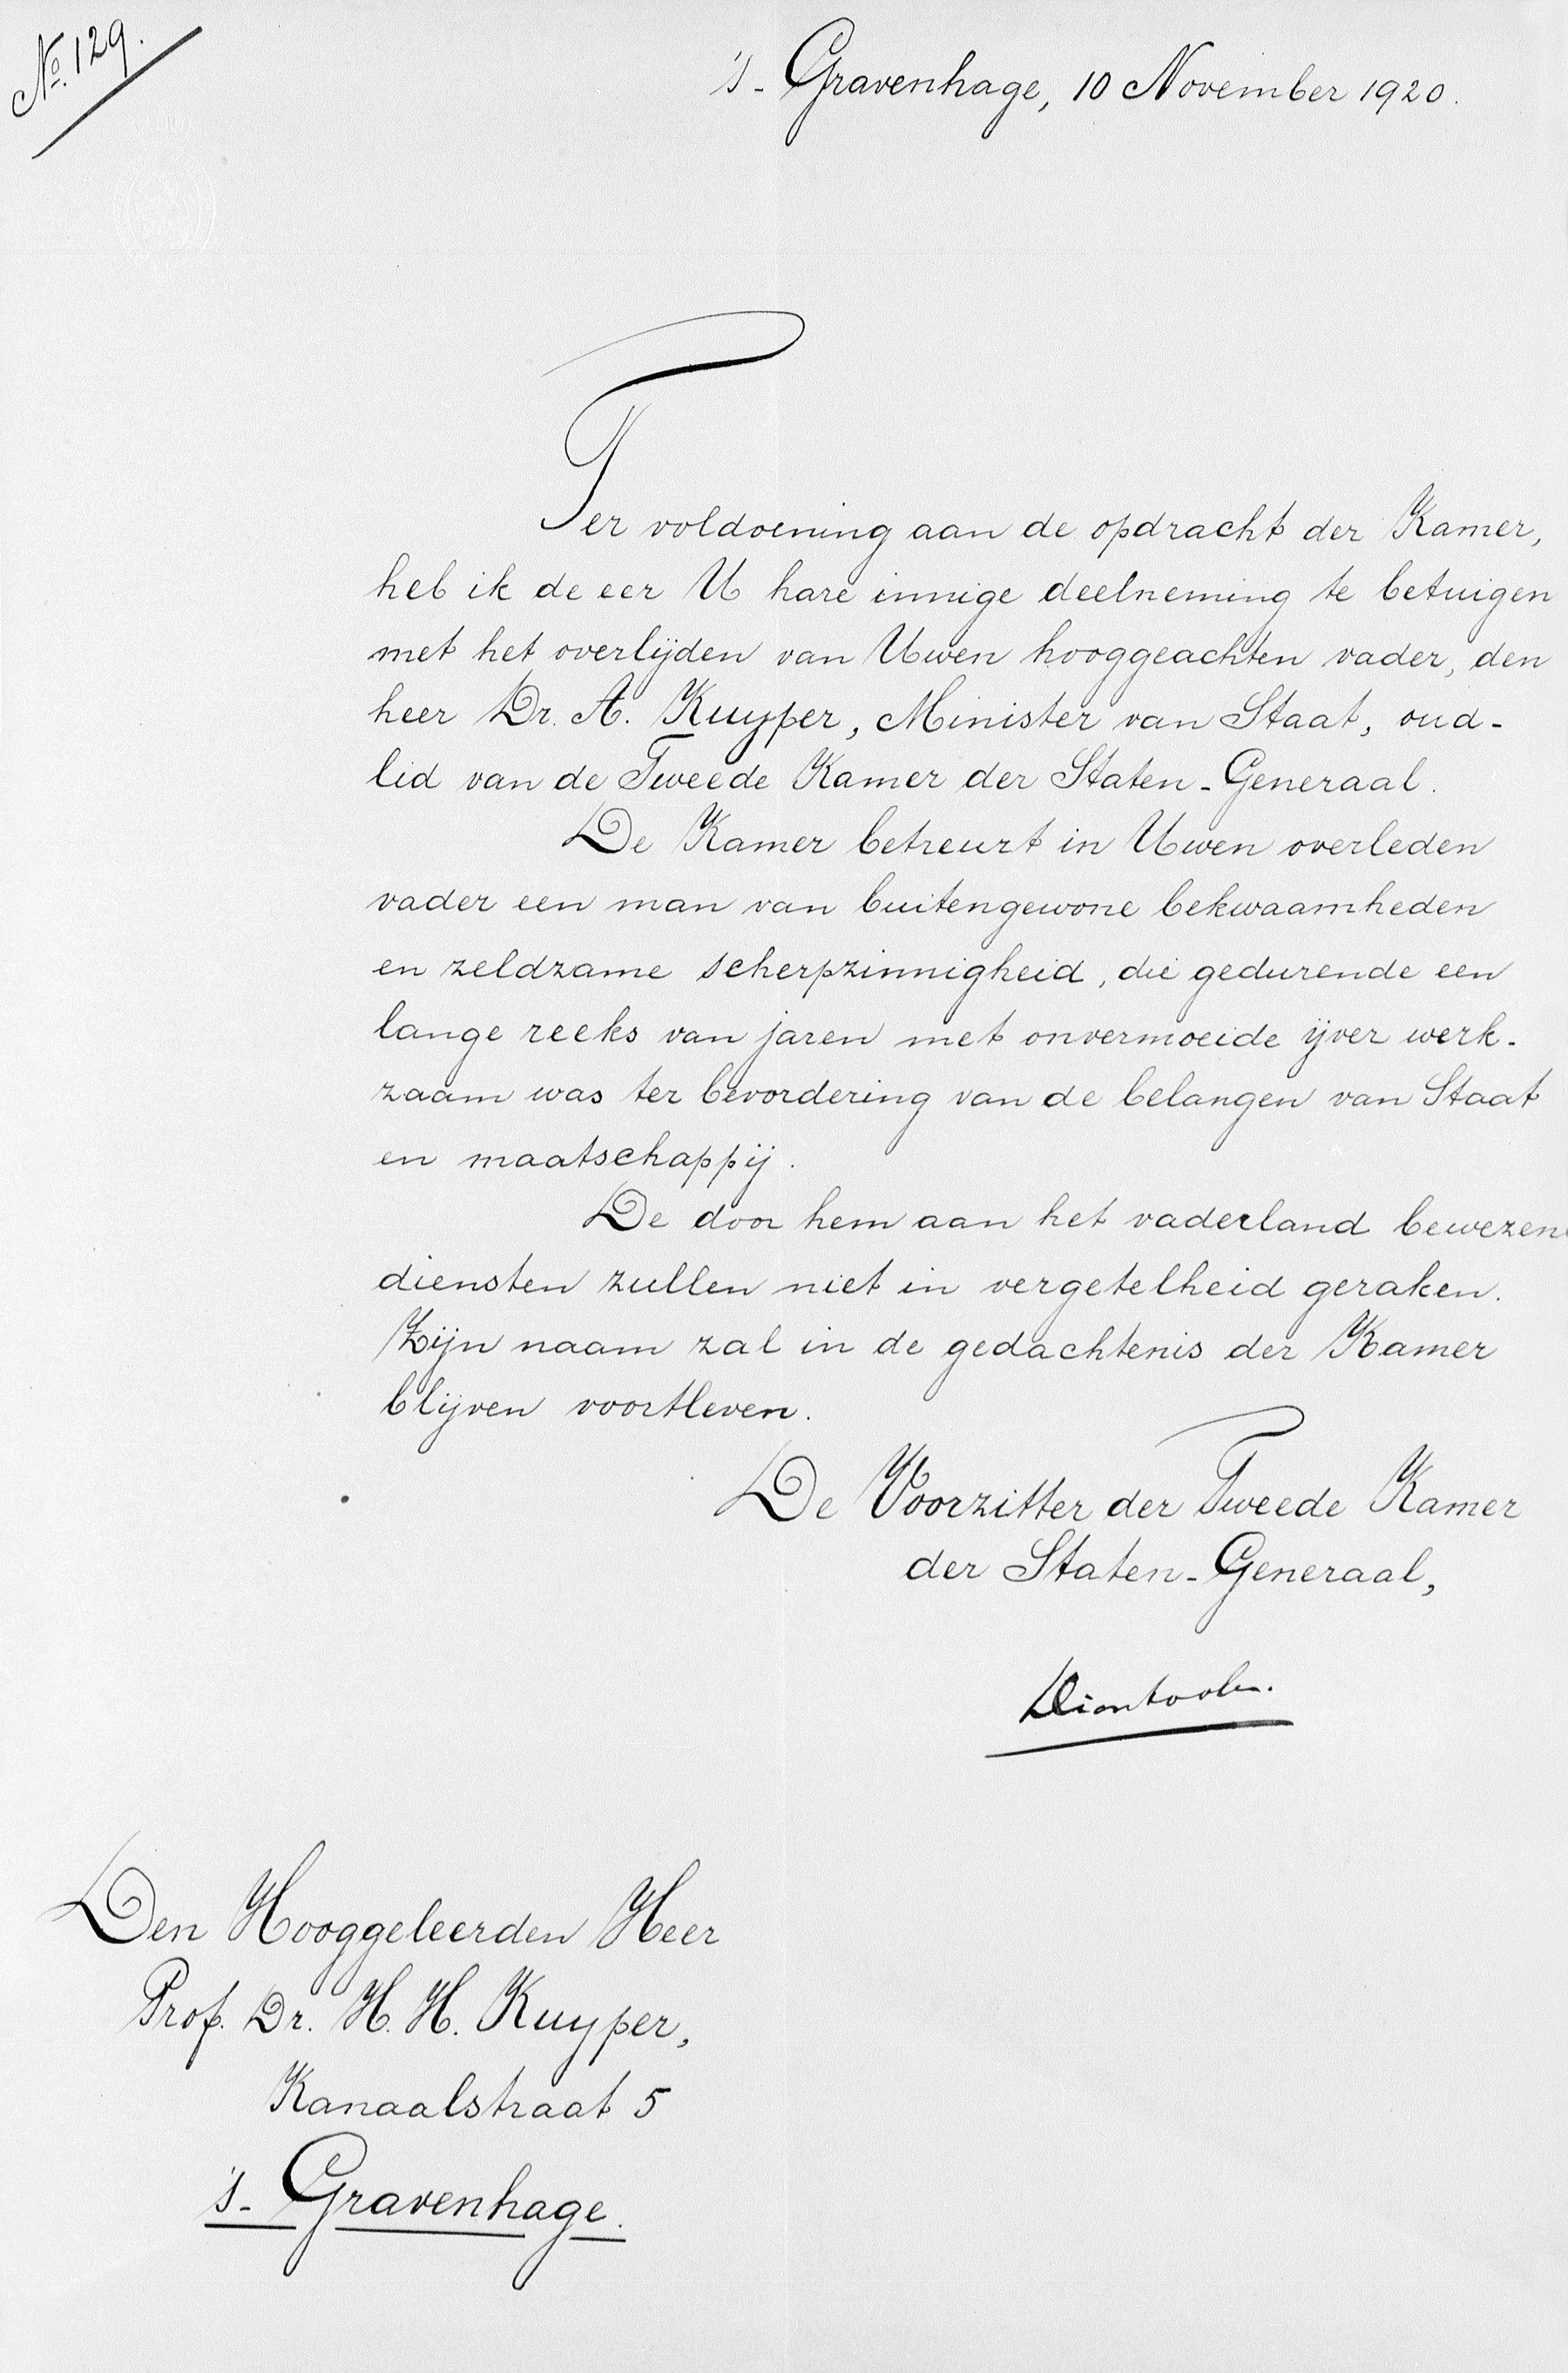 No. 129.
's-Gravenhage, 10 November 1920.
Ter voldoening aan de opdracht der Kamer,
heb ik de eer U hare innige deelneming te betuigen
met het overlijden van Uwen hooggeachten vader, den
heer Dr. A. Kuyper, Minister van Staat, oud-
lid van de Tweede Kamer der Staten-Generaal.
De Kamer betreurt in Uwen overleden
vader een man van buitengewone bekwaamheden
en zeldzame scherpzinnigheid, die gedurende een
lange reeks van jaren met onvermoeide ijver werk-
zaam was ter bevordering van de belangen van Staat
en maatschappij.
De door hem aan het vaderland bewezen
diensten zullen niet in vergetelheid geraken.
Zijn naam zal in de gedachtenis der Kamer
blijven voortleven.
De Voorzitter der Tweede Kamer
der Staten-Generaal,
Den Hooggeleerden Heer
Prof. Dr. H. H. Kuyper,
Kanaalstraat 5
's-Gravenhage.